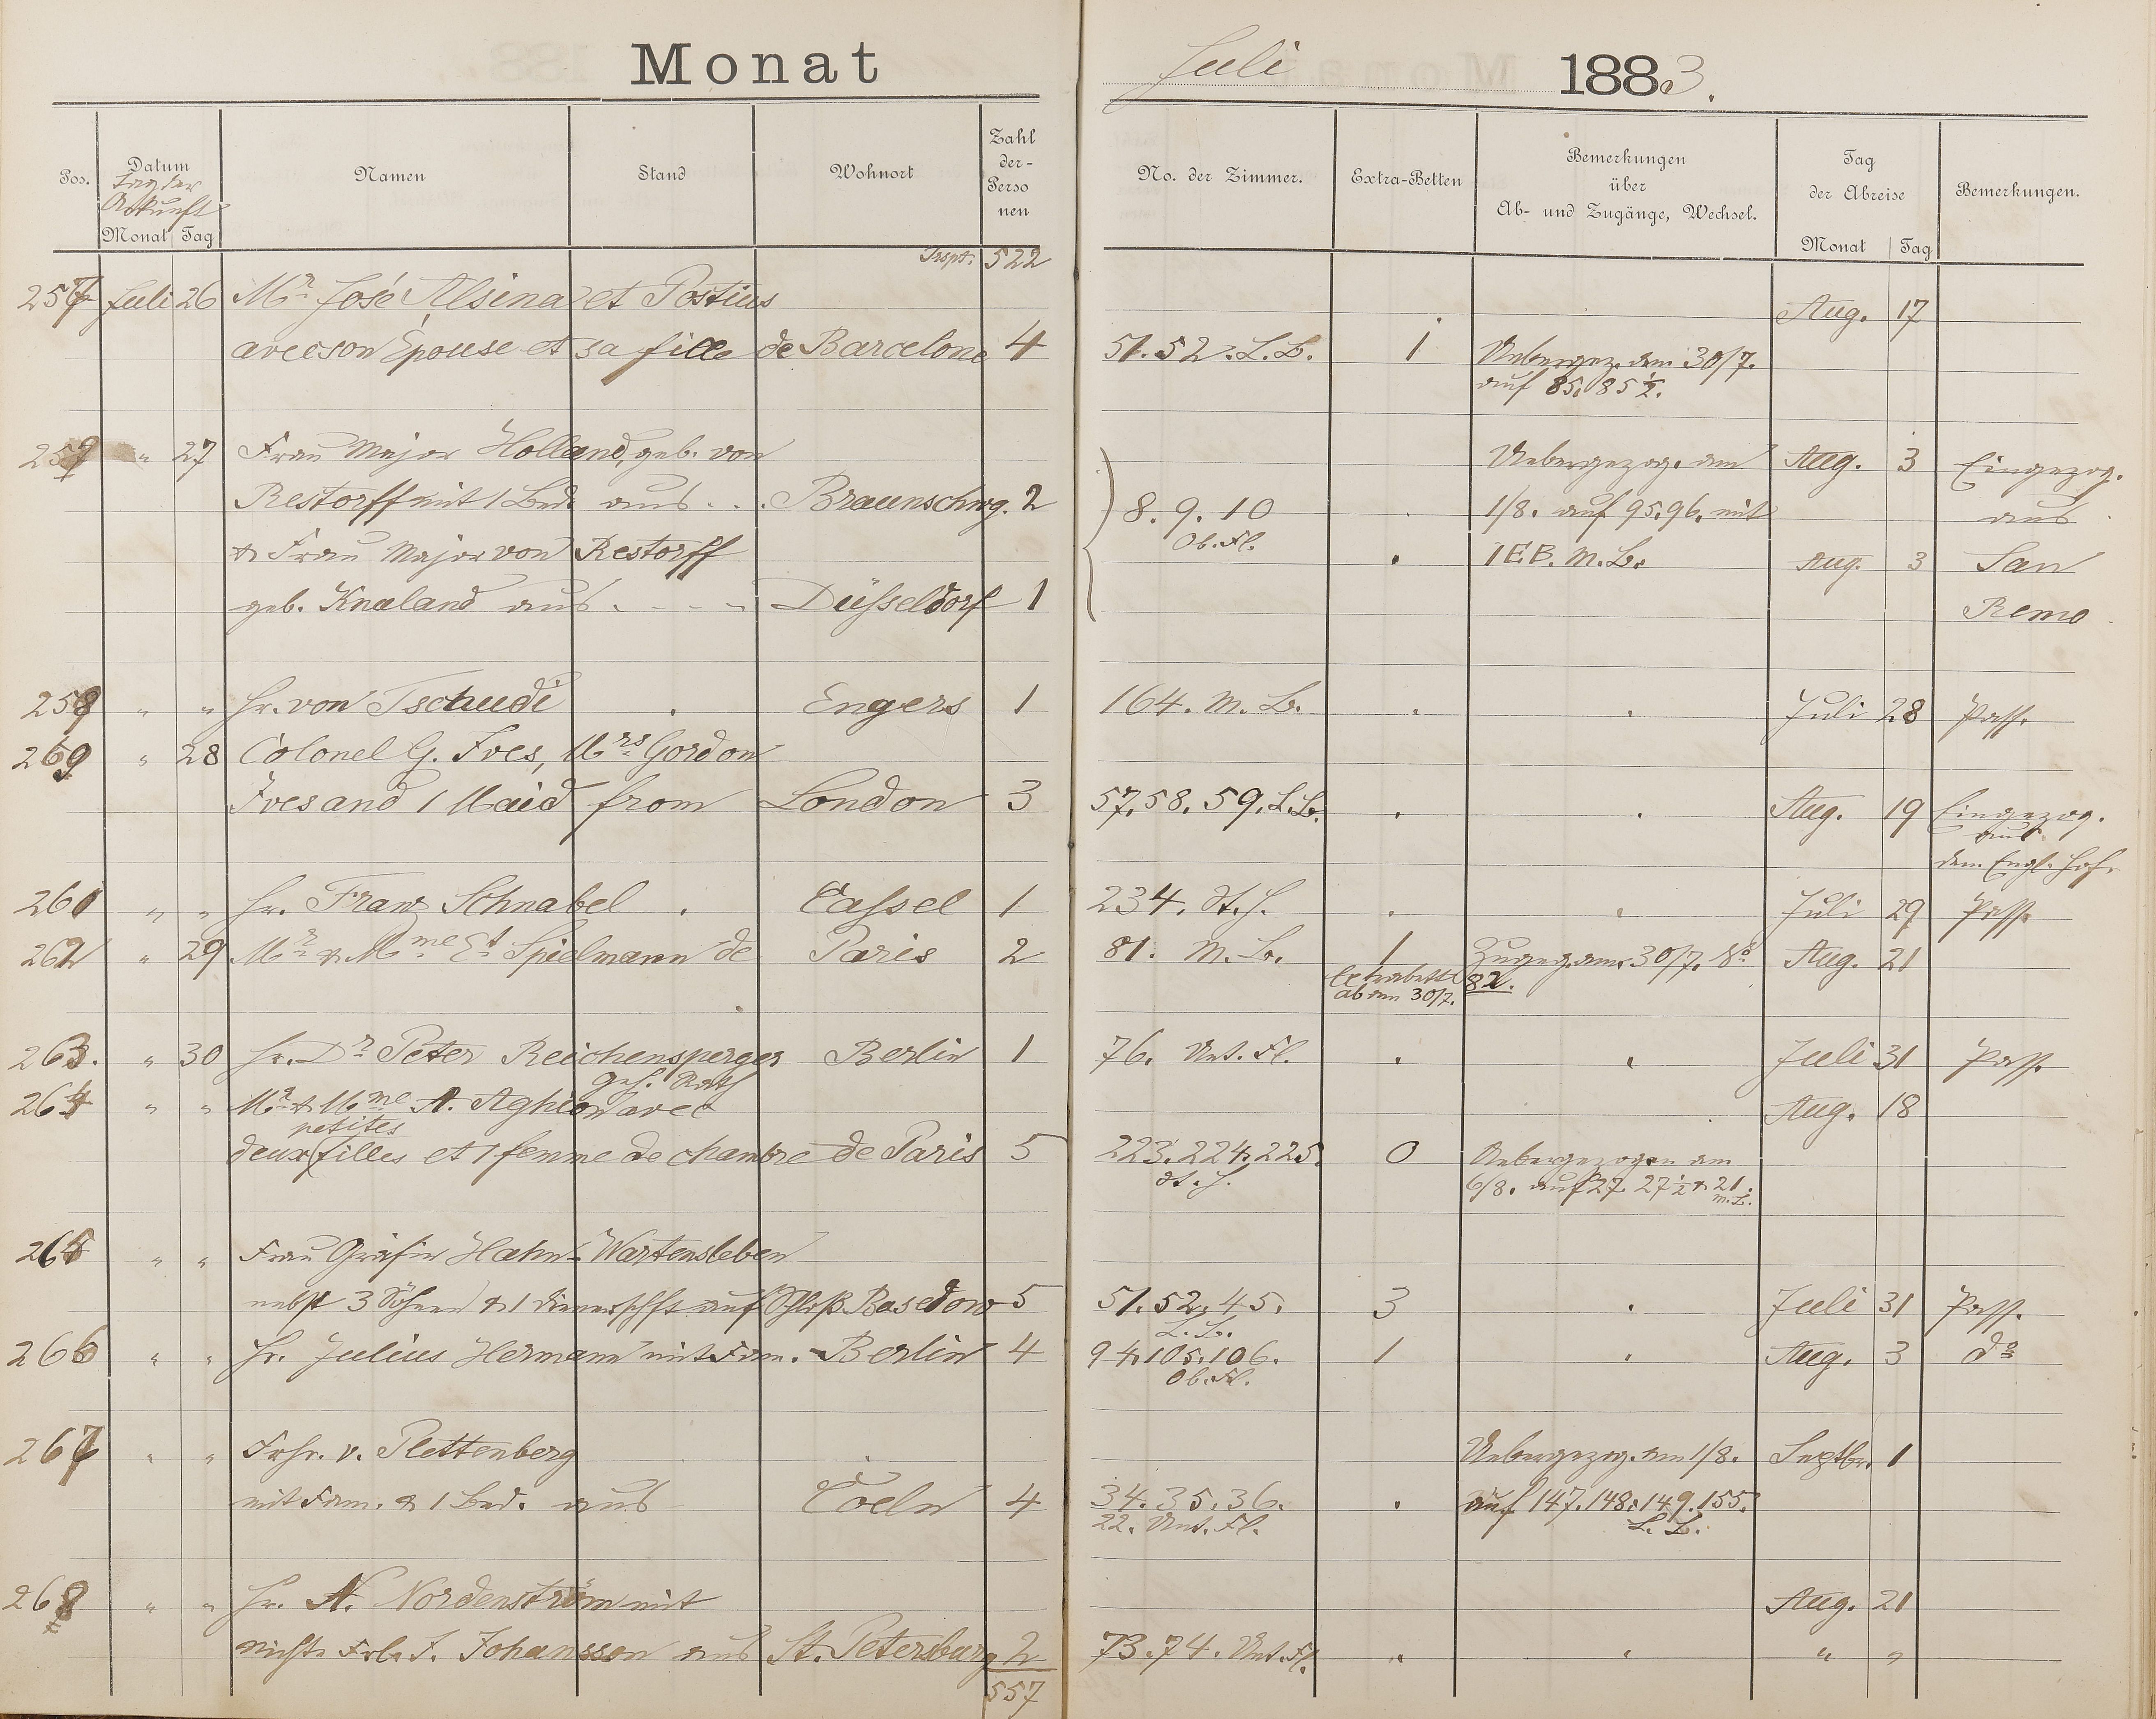 Monat Juli 1883.
Pos. Datum Namen Stand Wohnort Zahl der- Perso nen No. der Zimmer. Extra-Betten Bemerkungen über Ab- und Zugänge, Wechsel. Tag der Abreise Bemerkungen.
Tag der
Ankunft
Monat Tag Monat Tag
Trspt. 522
257 Juli 26 Mr. José Alsina et Postius Aug. 17
avec son Épouse et sa fille de Barcelone 4 51.52. L.B. 1 Uebergez. am 30/7.
auf 85. 85 1/2.
259 " 27 Frau Major Holland, geb. von Uebergezog. am Aug. 3 Eingezog.
Restorff mit 1 Bed. aus . . . Braunschwg. 2 8. 9. 10 . 1/8. auf 95.96. mit aus
Ob. Fl.
& Frau Major von Restorff . 1 E.B. M.B. Aug. 3 San
geb. Knaland aus - - - - Düsseldorf 1 Remo
258 " " Hr. von Tschudi . Engers 1 164. M. B. . . Juli 28 Pass.
269 " 28 Colonel G. Ives, Mrs Gordon
Ives and 1 Maid from London 3 57. 58. 59. L.B. . . Aug. 19 Eingezog.
aus
dem Engl. Hof.
260 " " Hr. Franz Schnabel . Cassel 1 234. St. H. . . Juli 29 Pass.
262 " 29 Mr. & Mme Et Spielmann de Paris 2 81. M. B. 1 Zugeg. am 30/7. No. Aug. 21
Extrabett ab am 30/7. 82.
263. " 30 Hr. Dr. Peter Reichensperger Berlin 1 76. Unt. Fl. . . Juli 31 Pass.
Geh. Rath
264 " " Mr. & Mme A. Aghion avec Aug. 18
petites
deux filles et 1 femme de chambre de Paris 5 223. 224. 225. 0 Uebergezogen am
St. H. 6/8. auf 27. 27 1/2 & 21.
M. B.
265 " " Frau Gräfin Hahn-Wartensleben
nebst 3 Söhnen & 1 Dienerschft auf Schloß Basedow 5 51. 52. 45. 3 . Juli 31 Pass.
L. B.
266 " " Hr. Julius Hermann mit Fam. - Berlin 4 94. 105. 106. 1 . Aug. 3 do
Ob. Fl.
267 " " Frhr. v. Plettenberg Uebergezog. am 1/8. Septbr. 1
mit Fam. & 1 Bed. aus Coeln 4 34. 35. 36. . auf 147. 148. 149. 155.
22. Unt. Fl. L. B.
268 " " Hr. N. Nordenström mit Aug. 21
Nichte Frl. J. Johansson aus St. Petersburg 2 73. 74. Unt. Fl. " . " "
557